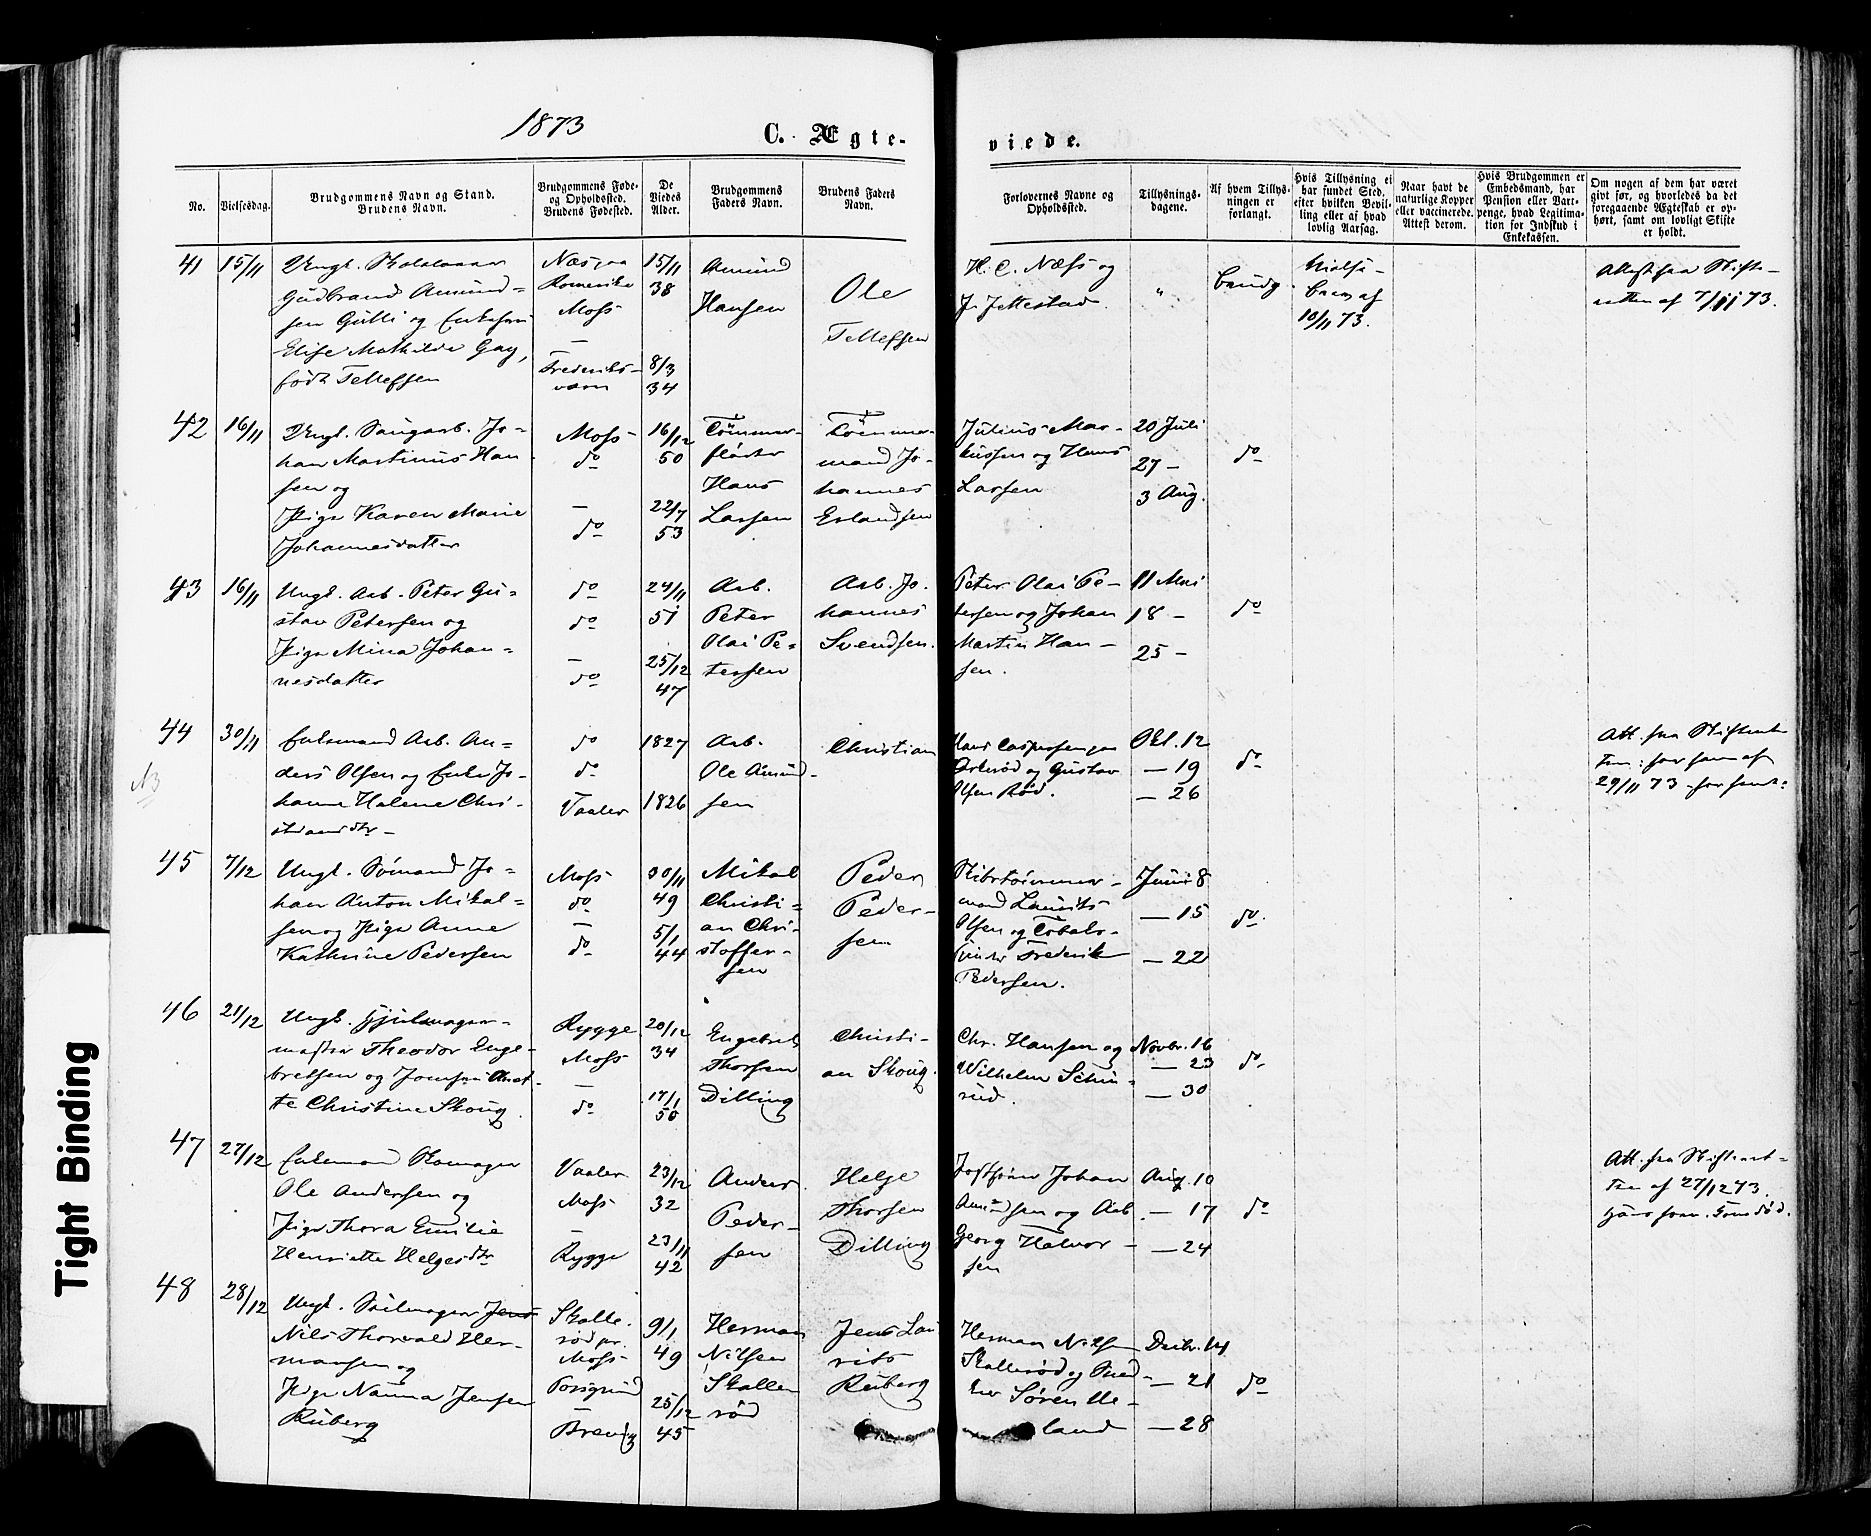 1873
C. Ægte-
viede.
No.
Vielsesdag.
Brudgommens Navn og Stand.
Brudens Navn.
Brudgommens Føde-
og Opholdssted.
Brudens Fødested.
De
Viedes
Alder.
Brudgommens
Faders Navn.
Brudens Faders
Navn.
Forlovernes Navne og
Opholdssted.
Tillysnings-
dagene.
Af hvem Tillys-
ningen er
forlangt.
Hvis Tillysning ei
har fundet Sted,
efter hvilken Bevil-
ling eller af hvad
lovlig Aarsag.
Naar havt de
naturlige Kopper
eller vaccinerede.
Attest derom.
Hvis Brudgommen er
Embedsmand, har
Pension eller Vart-
penge, hvad Legitima-
tion for Indskud i
Enkekassen.
Om nogen af dem har været
givt før, og hvorledes da det
foregaaende Ægteskab er op-
hørt, samt om lovligt Skifte
er holdt.
41
15/11
Ungk.
Gudbrand Amund-
sen Gulli og Enkefru
Elise Mathilde Gay,
født Tellefsen
Næs paa
Romerike
Moss
—
Frederiks-
værn
15/11
38
8/3
34
Amund
Hansen
Ole
Tellefsen
H. C. Næss og
J. Jellestad
"
Brudg.
10/11 73.
Attest fra Skifte-
retten af 7/11 73.
42
16/11
Ungk. Saugarb. Jo-
han Martinus Han-
sen og
Pige Karen Marie
Johannesdatter
Moss
do
—
do
16/12
50
22/7
53
Tømmer-
fløter
Hans
Larsen
Tømmer-
mand Jo-
hannes
Erlandsen
Julius Mar-
kussen og Hans
Larsen
20 Juli
27 —
3 Aug.
do
43
16/11
Ungk. Arb. Peter Gu-
stav Petersen og
Pige Mina Johan-
nesdatter
do
do
—
do
24/11
51
25/12
47
Arb.
Peter
Olai Pe-
tersen
Arb. Jo-
hannes
Svendsen.
Peter Olai Pe-
tersen og Johan
Martin Han-
sen.
11 Mai
18 —
25 —
do
44
NB
30/11
Enkemand Arb. An-
ders Olsen og Enke Jo-
hanne Helene Chri-
stiansdtr —
do
do
Vaaler
1827
1826
Arb.
Ole Amund-
sen
Christian
Hans Caspersen paa
og Gustav
Olsen Rød.
Okt. 12
— 19
— 26
do
Att. fra Skifteret-
ten: for ham af
29/11 73 - for hende:
45
7/12
Ungk. Sømand Jo-
han Anton Mikal-
sen og Pige Anne
Kathrine Pedersen
Moss
do
—
do
30/11
49
5/1
44
Mikal
Christi-
an Chri-
stoffer-
sen
Peder
Peder-
sen
Skibstømmer-
mand Laurits
Olsen og Tobaks-
Frederik
Pedersen.
Juni 8
— 15
— 22
do
46
21/12
Ungk. Hjulmager-
mester Theodor Enge-
bretsen og Jomfru Anet-
te Christine Skoug
Rygge
Moss
—
do
20/12
34
17/1
50
Engebret
Thorsen
Dilling
Christi-
an Skoug.
Chr. Hansen og
Wilhelm Schu-
rud.
Novbr. 16
— 23
— 30
do
47
27/12
Enkemand Skomager
Ole Andersen og
Pige Thora Emilie
Henriette Helgesdtr
Vaaler
Moss
—
Rygge
23/12
32
23/11
42
Anders
Peder-
sen
Helge
Thorsen
Dilling
Johan
Amundsen og Arb.
Georg Halvor-
sen
Aug. 10
— 17
— 24
do
Att. fra Skifteret-
ten af 27/12 73.
48
28/12
Ungk. Seilmager Jens
Nils Thorvald Her-
mansen og
Pige Nanna Jensen
Ruberg
Skalle-
rød pr.
Moss
Porsgrund
—
Brevig
9/1
49
25/12
45
Herman
Nilsen
Skalle
rød
Jens Lau
rits
Ruberg
Herman Nilsen
Skallerød og Sned-
ker Søren He-
land
Decbr. 14
— 21
— 28
do
Tight Binding